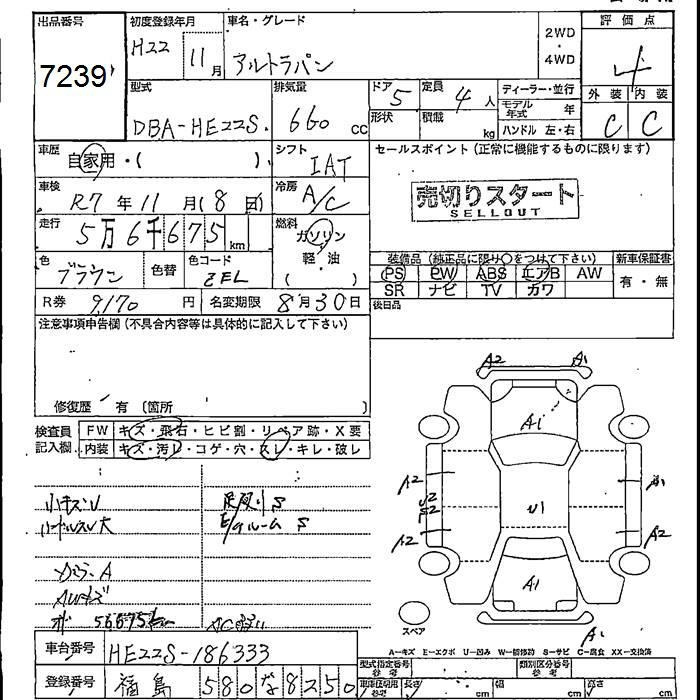 出品番号 初度登録年月 車名・グレード 2WD・4WD 評価点
7239 H22 11月 アルトラパン 4
型式 排気量 ドア 5 定員 4人 ディーラー・並行 外装 内装
DBA-HE22S. 660 cc 形状 積載 kg モデル年式 年 C C
ハンドル 左・右
車歴 自家用・( ) シフト IAT セールスポイント(正常に機能するものに限ります)
車検 R7年11月(8日) 冷房 A/C 売切りスタート
SELLOUT
走行 5万6千675km 燃料 ガソリン
軽・油
( )
装備品(純正品に限り○をつけて下さい) 新車保証書
色 ブラウン 色替 色コード ZFL PS PW ABS エアB AW 有・無
SR ナビ TV カワ
R券 9,170円 名変期限 8月30日 後日品
注意事項申告欄(不具合内容等は具体的に記入して下さい)
修復歴 有〔箇所 〕
検査員記入欄 FW キズ・飛石・ヒビ割・リペア跡・X要
内装 キズ・汚レ・コゲ・穴・スレ・キレ・破レ
A2 A1
A1
A2 A1
U1
A2 A2
A1
A1
小キズU 足廻りS
ハンドルスレ大 E/gルームS
AWキズ
56675km
スペア
A-キズ E-エクボ U-凹み W-補修跡 S-サビ C-腐蝕 XX-交換済
車台番号 HE22S-186333
登録番号 福島 580 な 8250
型式指定番号 参考 類別区分番号 参考
車庫証明用 参考 長さ cm 幅 cm 高さ cm